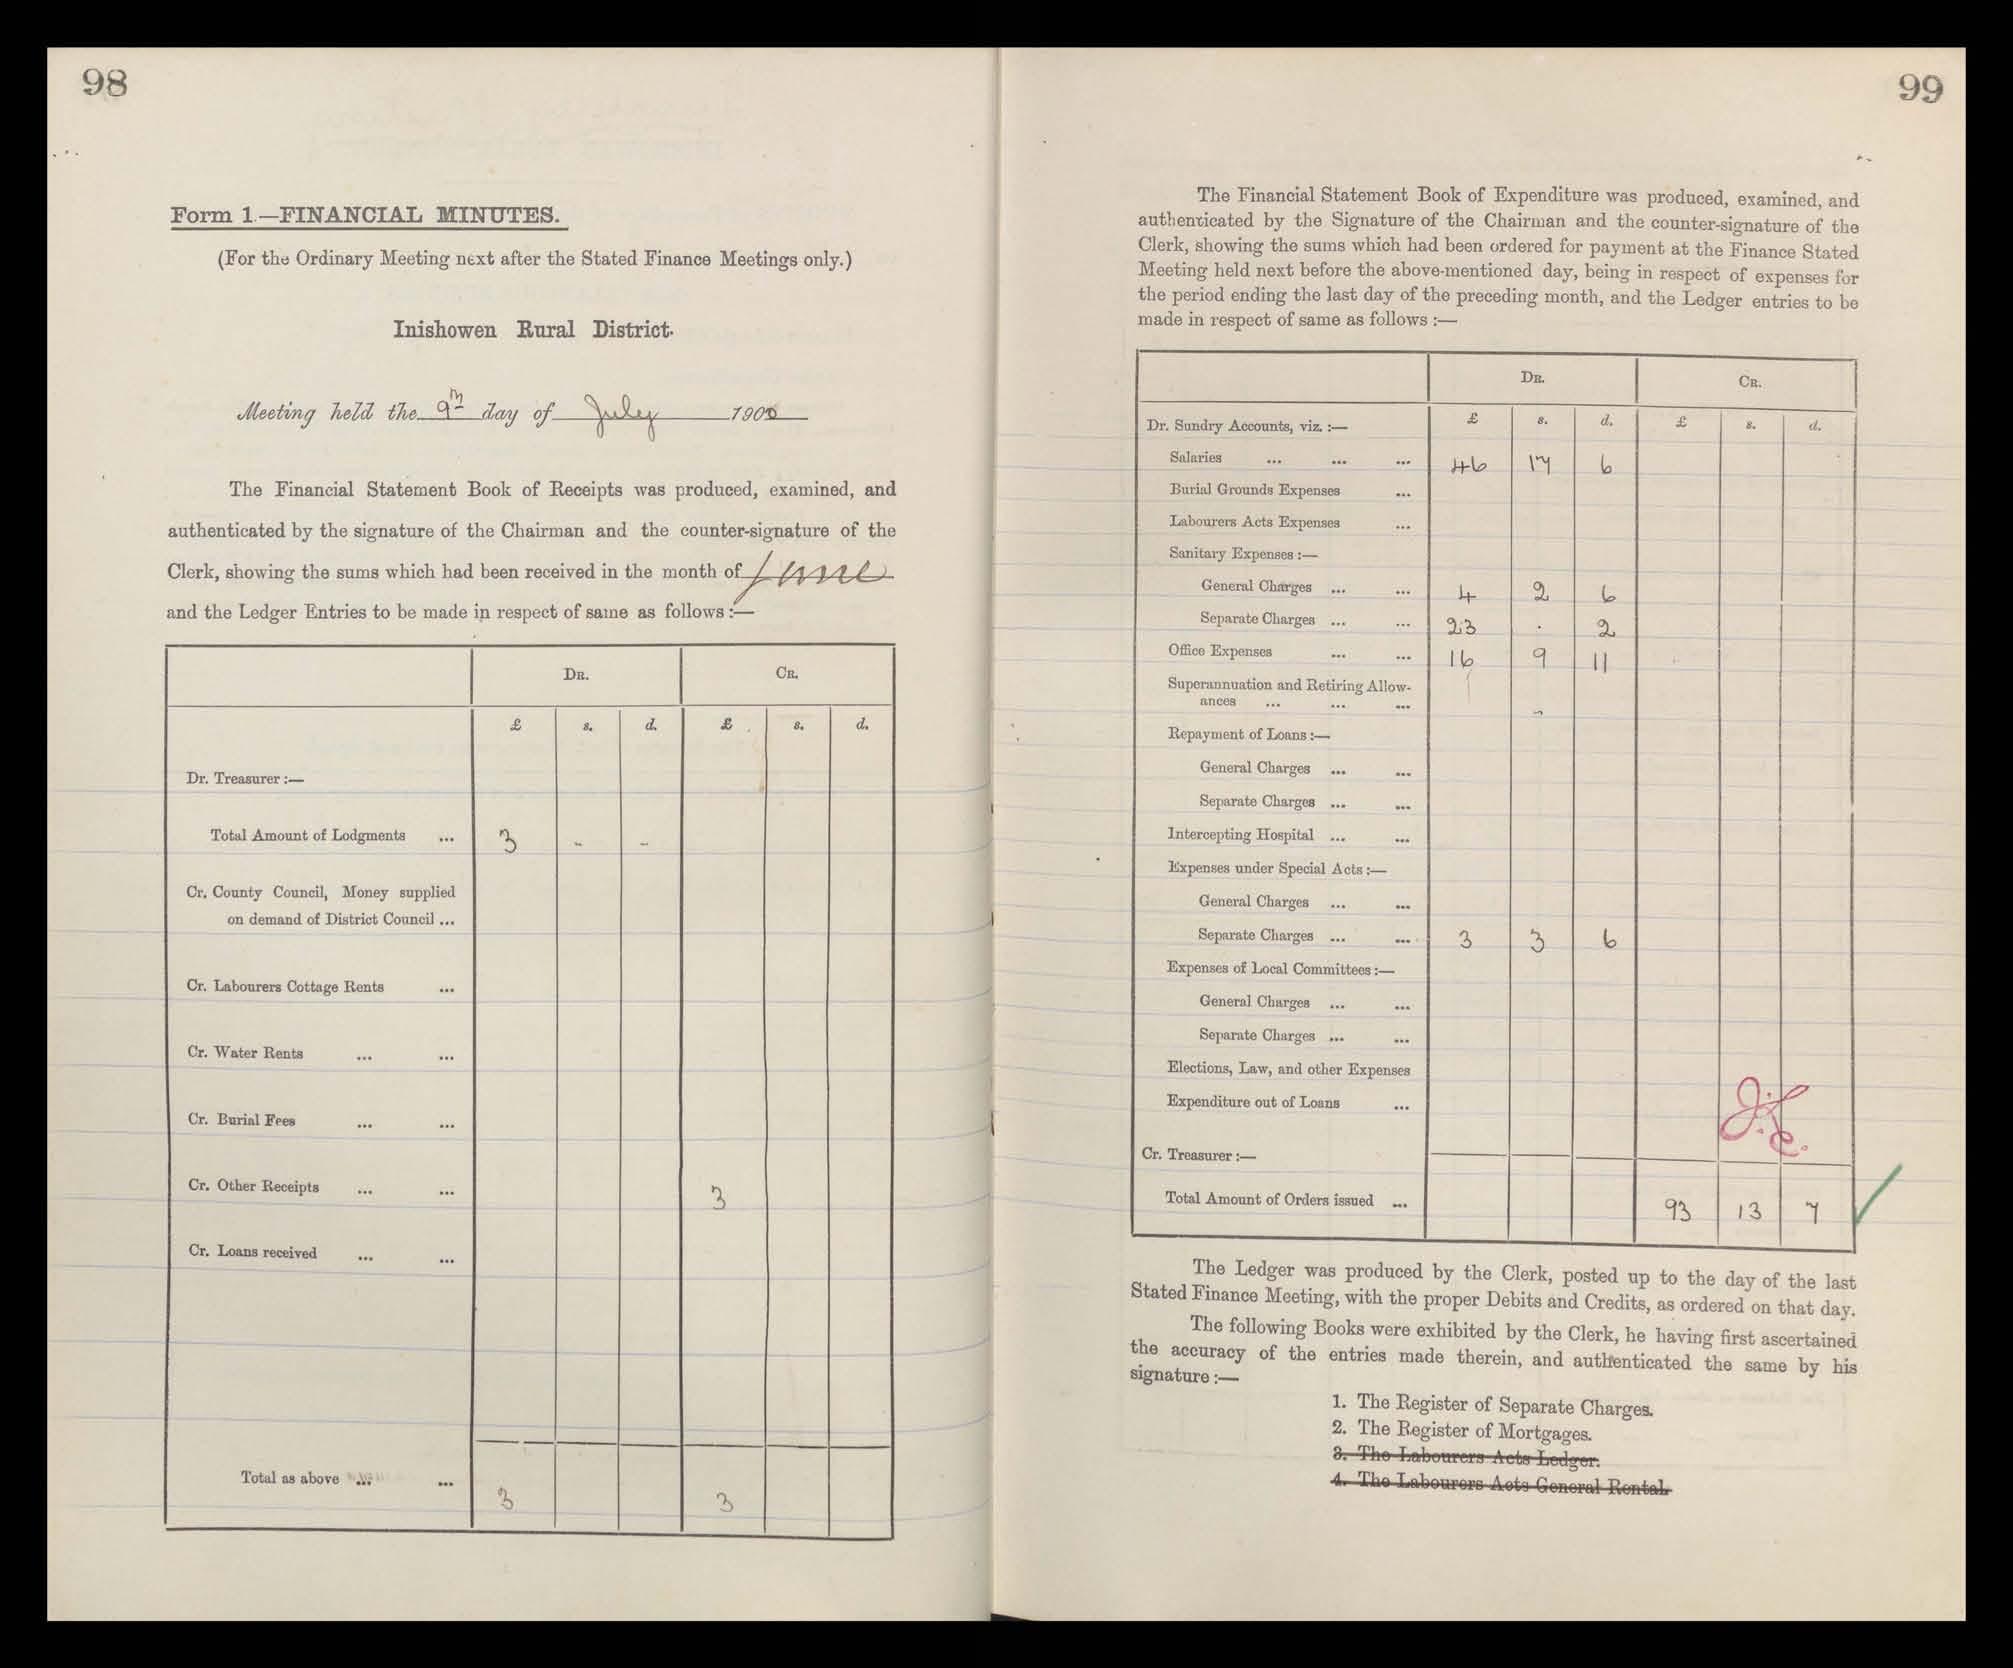 98
Form 1.—FINANCIAL MINUTES.
(For the Ordinary Meeting next after the Stated Finance Meetings only.)
Inishowen Rural District.
Meeting held the 9th day of July 1900
The Financial Statement Book of Receipts was produced, examined, and
authenticated by the signature of the Chairman and the counter-signature of the
Clerk, showing the sums which had been received in the month of June
and the Ledger Entries to be made in respect of same as follows :—
DR. CR.
£ s. d. £ s. d.
Dr. Treasurer :—
Total Amount of Lodgments ... 3 - -
Cr. County Council, Money supplied
on demand of District Council ...
Cr. Labourers Cottage Rents ...
Cr. Water Rents ... ...
Cr. Burial Fees ... ...
Cr. Other Receipts ... ... 3
Cr. Loans received ... ...
Total as above ... ... 3 3
99
The Financial Statement Book of Expenditure was produced, examined, and
authenticated by the Signature of the Chairman and the counter-signature of the
Clerk, showing the sums which had been ordered for payment at the Finance Stated
Meeting held next before the above-mentioned day, being in respect of expenses for
the period ending the last day of the preceding month, and the Ledger entries to be
made in respect of same as follows :—
DR. CR.
Dr. Sundry Accounts, viz. :— £ s. d. £ s. d.
Salaries ... ... ... 46 17 6
Burial Grounds Expenses ...
Labourers Acts Expenses ...
Sanitary Expenses :—
General Charges ... ... 4 2 6
Separate Charges ... ... 23 . 2
Office Expenses ... ... 16 9 11
Superannuation and Retiring Allow-
ances ... ... ...
Repayment of Loans :—
General Charges ... ...
Separate Charges ... ...
Intercepting Hospital ... ...
Expenses under Special Acts :—
General Charges ... ...
Separate Charges ... ... 3 3 6
Expenses of Local Committees :—
General Charges ... ...
Separate Charges ... ...
Elections, Law, and other Expenses
Expenditure out of Loans ...
Cr. Treasurer :—
Total Amount of Orders issued ... 93 13 7
The Ledger was produced by the Clerk, posted up to the day of the last
Stated Finance Meeting, with the proper Debits and Credits, as ordered on that day.
The following Books were exhibited by the Clerk, he having first ascertained
the accuracy of the entries made therein, and authenticated the same by his
signature :—
1. The Register of Separate Charges.
2. The Register of Mortgages.
3. The Labourers Acts Ledger.
4. The Labourers Acts General Rental.